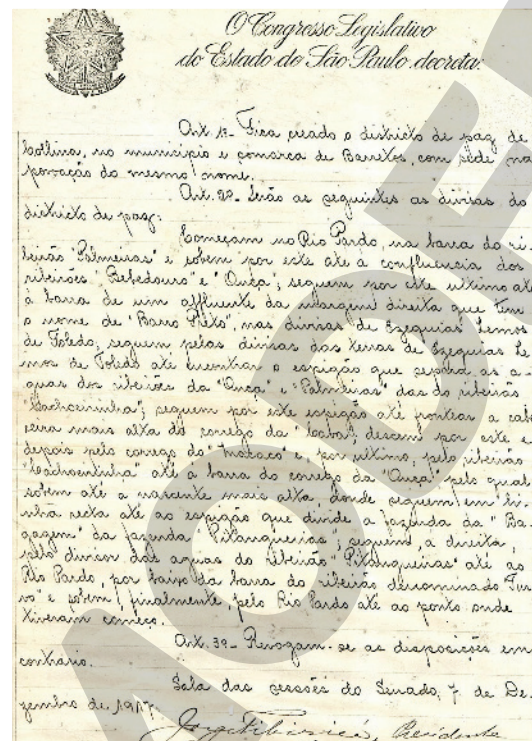 O Congresso Legislativo
do Estado de São Paulo decreta:
Art. 1º - Fica creado o districto de paz de
Collina, no municipio e comarca de Barretos, com séde na
povoação do mesmo nome.
Art. 2º - Serão as seguintes as divisas do
districto de paz:
Começam no Rio Pardo, na barra do ri-
beirão "Palmeiras" e sobem por este até á confluencia dos
ribeirões "Bebedouro" e "Onça"; seguem por este ultimo até
á barra de um affluente da margem direita que tem
o nome de "Barro Preto", nas divisas de Ezequias Lemos
de Toledo, seguem pelas divisas das terras de Ezequias Le-
mos de Toledo até encontrar o espigão que separa as a-
guas dos ribeirões da "Onça" e "Palmeiras" das do ribeirão
"Cachoeirinha"; seguem por este espigão até frontear a cabe-
ceira mais alta do corrego da descem por este e
depois pelo corrego do "Macaco" e, por ultimo, pelo ribeirão
"Cachoeirinha" até a barra do corrego da "Onça" pelo qual
sobem até a nascente mais alta, donde seguem em li-
nha recta até ao espigão que divide a fazenda da "Ba-
gagem" da fazenda "Pitangueiras"; seguem, a direita,
pelo divisor das aguas do ribeirão "Pitangueiras" até ao
Rio Pardo, por baixo da barra do ribeirão denominado "Tur-
vo" e sobem, finalmente pelo Rio Pardo até ao ponto onde
tiveram começo.
Art. 3º - Revogam-se as disposições em
contrario.
Sala das sessões do Senado, 7 de De-
zembro de 1917.
Jorge Tibiriçá, Presidente
MODE